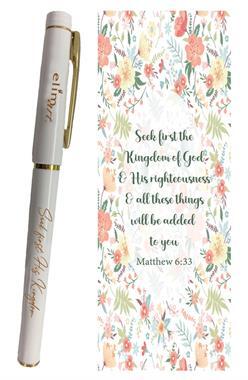 elim
Seek first His Kingdom
Seek first the
Kingdom of God,
& His righteousness
& all these things
will be added
to you
Matthew 6:33